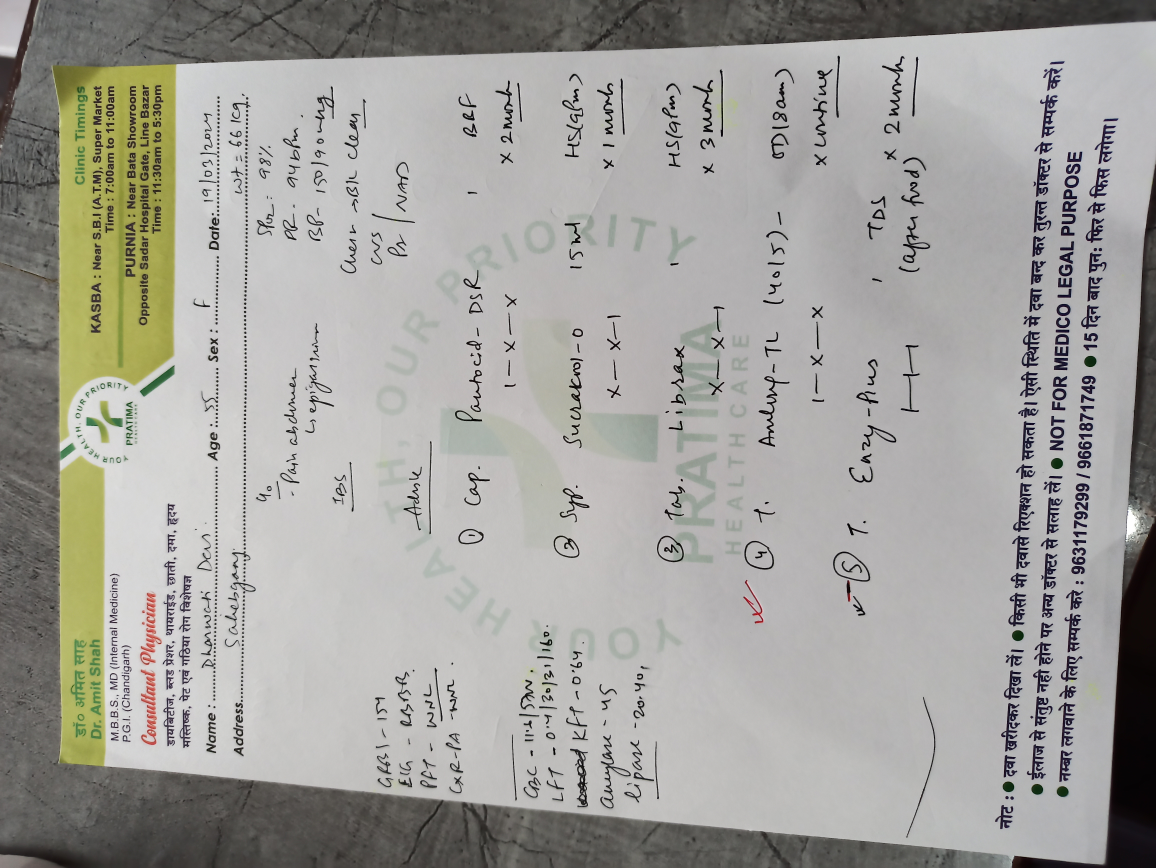 डॉ० अमित साह
Dr. Amit Shah
M.B.B.S., MD (Internal Medicine)
P.G.I. (Chandigarh)
Consultant Physician
डायबिटीज, ब्लड प्रेशर, थायराईड, छाती, दमा, हृदय
मस्तिष्क, पेट एवं गठिया रोग विशेषज्ञ
YOUR HEALTH, OUR PRIORITY
PRATIMA
HEALTHCARE
Clinic Timings
KASBA : Near S.B.I (A.T.M), Super Market
Time : 7:00am to 11:00am
PURNIA : Near Bata Showroom
Opposite Sadar Hospital Gate, Line Bazar
Time : 11:30am to 5:30pm
Name : Dharwati Devi. Age : 55 Sex : F Date: 19/03/2024
Address. Sahebganj. Wt = 66 kg.
SPO2: 98%.
PR - 94 bpm.
BP - 150/90 mmHg
Chest → B/L clear
CVS
PA / NAD
C/o
- Pain abdomen
↳ epigastrium
IBS
GRBS - 154
ECG - 
PFT - WNL
CXR-PA - WNL.
CBC - 11.2/
LFT - 0.4/20/31/160.
KFT - 0.64.
amylase - 45
lipase - 20.40,
Advise
① Cap. Pantocid - DSR 1 BBF
1 — x — x x 2 month
② Syp. Sucrakol - O 15ml HS (9pm)
x — x — 1 x 1 month
③ Tab. Librax 1 HS (9pm)
x — x — 1 x 3 month
④ T. Amlosip - TL (40/5) - OD (8am)
1 — x — x x continue
⑤ T. Enzy-Plus 1 TDS x 2 month
1 — 1 — 1 (after food)
YOUR HEALTH, OUR PRIORITY
PRATIMA
HEALTHCARE
नोट : ● दवा खरीदकर दिखा लें। ● किसी भी दवासे रिएक्शन हो सकता है। ऐसी स्थिति में दवा बन्द कर तुरन्त डॉक्टर से सम्पर्क करें।
● ईलाज से संतुष्ट नही होने पर अन्य डॉक्टर से सलाह लें। ● NOT FOR MEDICO LEGAL PURPOSE
● नम्बर लगवाने के लिए सम्पर्क करे : 9631179299 / 9661871749 ● 15 दिन बाद पुनः फिर से फिस लगेगा।